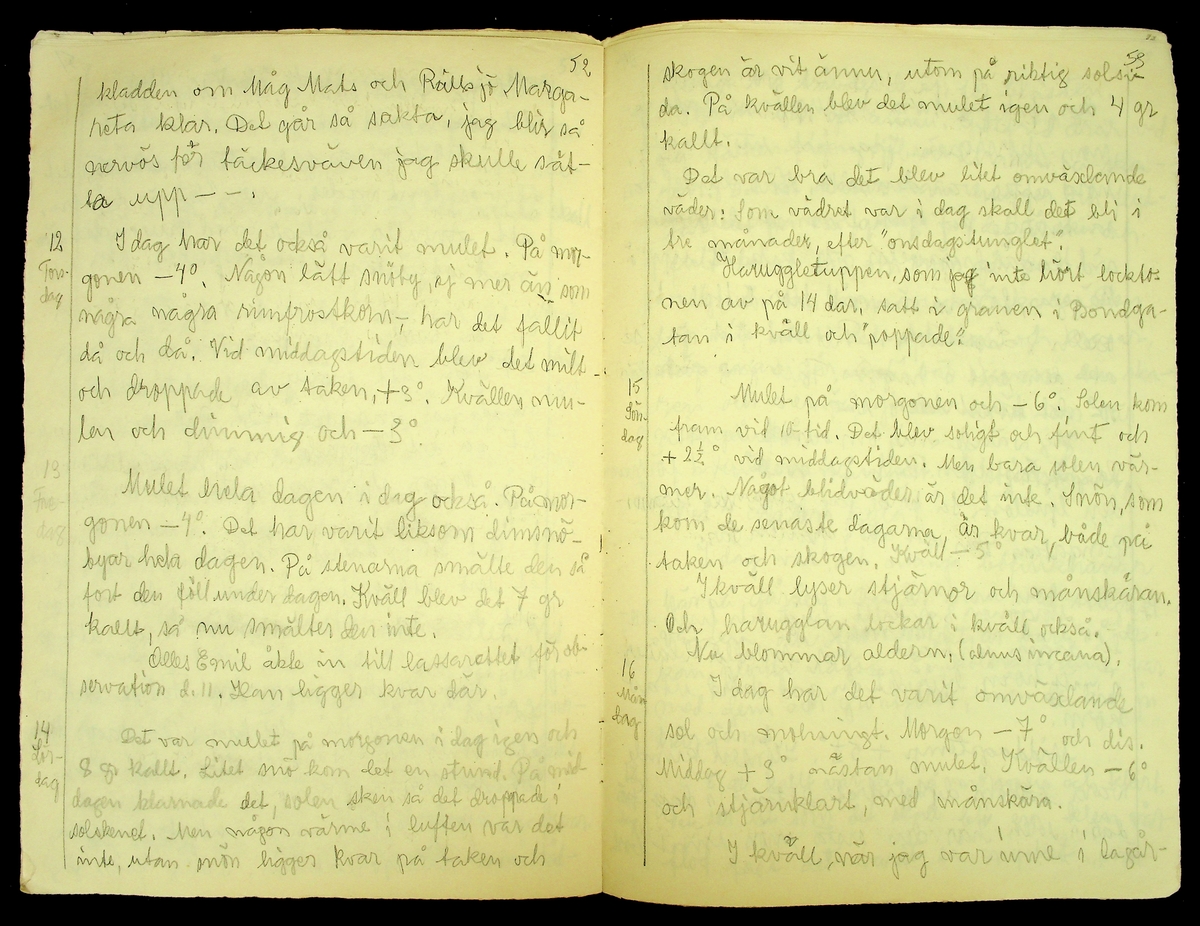 52
kladden om Måg Mats och Rättsjö Marga-
reta klar. Det går så sakta, jag blir så
nervös för täckesväven jag skulle sät-
ta upp — — .
12
Tors-
dag
I dag har det också varit mulet. På mor-
gonen —4°. Någon lätt snöby, ej mer än som
några några rimfrostkorn, har det fallit
då och då. Vid middagstiden blev det milt
och droppade av taken, +3°. Kvällen mu-
len och dimmig och —3°.
13
Fre-
dag
Mulet hela dagen i dag också. På mor-
gonen —4°. Det har varit liksom dimsnö-
byar hela dagen. På stenarna smälte den så
fort den föll under dagen. Kväll blev det 7 gr
kallt, så nu smälter den inte.
Olles Emil åkte in till lassarettet för ob-
servation d. 11. Han ligger kvar där.
14
Lör-
dag
Det var mulet på morgonen i dag igen och
8 gr kallt. Litet snö kom det en stund. På mid
dagen klarnade det, solen sken så det droppade i
solskenet. Men någon värme i luften var det
inte, utan snön ligger kvar på taken och
53
skogen är vit ännu, utom på riktig solsi-
da. På kvällen blev det mulet igen och 4 gr
kallt.
Det var bra det blev litet omväxlande
väder: Som vädret var i dag skall det bli i
tre månader, efter "onsdagstunglet".
Haruggletuppen, som jag inte hört lockto-
nen av på 14 dar, satt i granen i Bondga-
tan i kväll och "poppade".
15
Sön-
dag
Mulet på morgonen och —6°. Solen kom
fram vid 10-tid. Det blev soligt och fint och
+2½° vid middagstiden. Men bara solen vär-
mer. Något blidväder är det inte. Snön, som
kom de senaste dagarna, är kvar, både på
taken och skogen. Kväll —5°
I kväll lyser stjärnor och månskäran.
Och harugglan lockar i kväll också.
Nu blommar aldern, (alnus incana).
16
Mån
dag
I dag har det varit omväxlande
sol och molnigt. Morgon —7° och dis.
Middag +3° nästan mulet. Kvällen —6°
och stjärnklart, med månskära.
I kväll, när jag var inne i lagår-